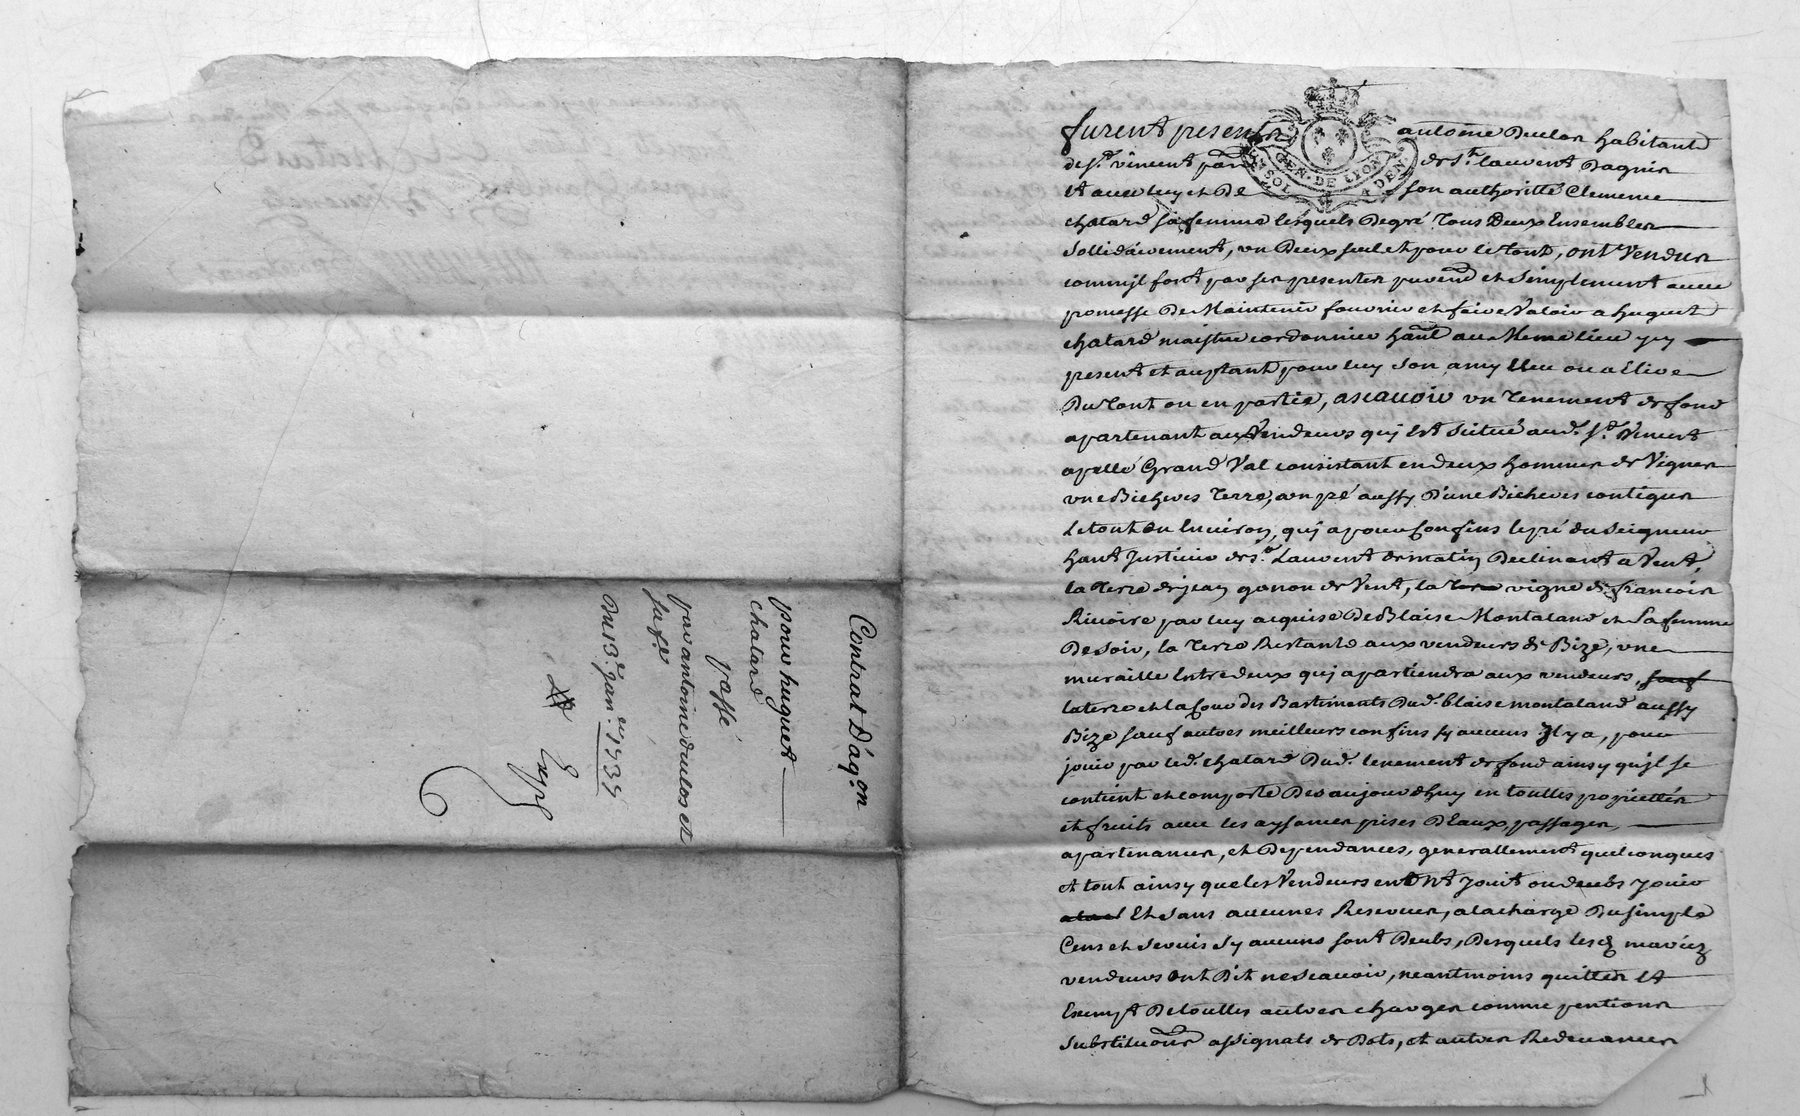 Contrat D'aq.on
pour huguet
chatard
passé
par antoine duclos et
sa fe
Du 13.e jan.er 1735
Expé
furent presens antoine Duclos habitant
de S.t vincent par de S.t laurent Dagnis
Et avec luy et De son authoritté Clemence
chatard sa femme lesquels Degré Tous Deux Ensembles
Sollidairement, un Deux seul et pour le tout, ont Vendus
comm'jl font par ses presentes purem.t et Simplement avec
promesse De Maintenir fournir et faire Valoir a huguet
chatard maistre cordonnier ha.nt au Meme lieu jcy
present et acceptant pour luy Son amy Eleu ou a Elire
Du Tout ou en partie, ascauoir un Tenement de fond
apartenant aux Vendeurs qui Est Scitué aud. S.t Vincent
apellé Grand Val consistant en deux hommes de Vignes
une Bicheres Terre, un pré aussy D'une Bicheres contigus
Le tout ou Enuiron, qui a pour Confins le pré du Seigneur
haut Justicier de S.t Laurent de matin Declinant a Vent,
la Terre de jean gonon de Vent, la vigne de francois
Riuoire par luy acquise De Blaise Montaland et Sa femme
De Soir, la Terre Restante aux vendeurs de Bize, une
muraille Entredeux qui apartiendra aux vendeurs, sauf
la terre et la Cour des Bastiments Dud. blaise montaland aussy
Bize sauf autres meilleurs confins sy aucuns jl y a, pour
jouir par led. chatard Dud. tenement de fond ainsy qu'jl se
contient et comporte Des aujourdhuy en touttes proprietés
et fruits auec les aysances prises D'Eaux, passages,
apartenances, et Dependances, generallement quelconques
et tout ainsy que les Vendeurs en ont Jouit ou deubs Jouir
Et Sans aucunes Reserues, a la charge Du simple
Cens et Seruis Sy aucuns sont Deubs, Desquels lesd mariez
vendeurs ont Dit ne Scauoir, neantmoins quittes Et
Exempt De touttes autres charges comme pentions
Substituõns assignats de Dots, et autres Redeuances
GEN. DE LYON
SOL DEN.